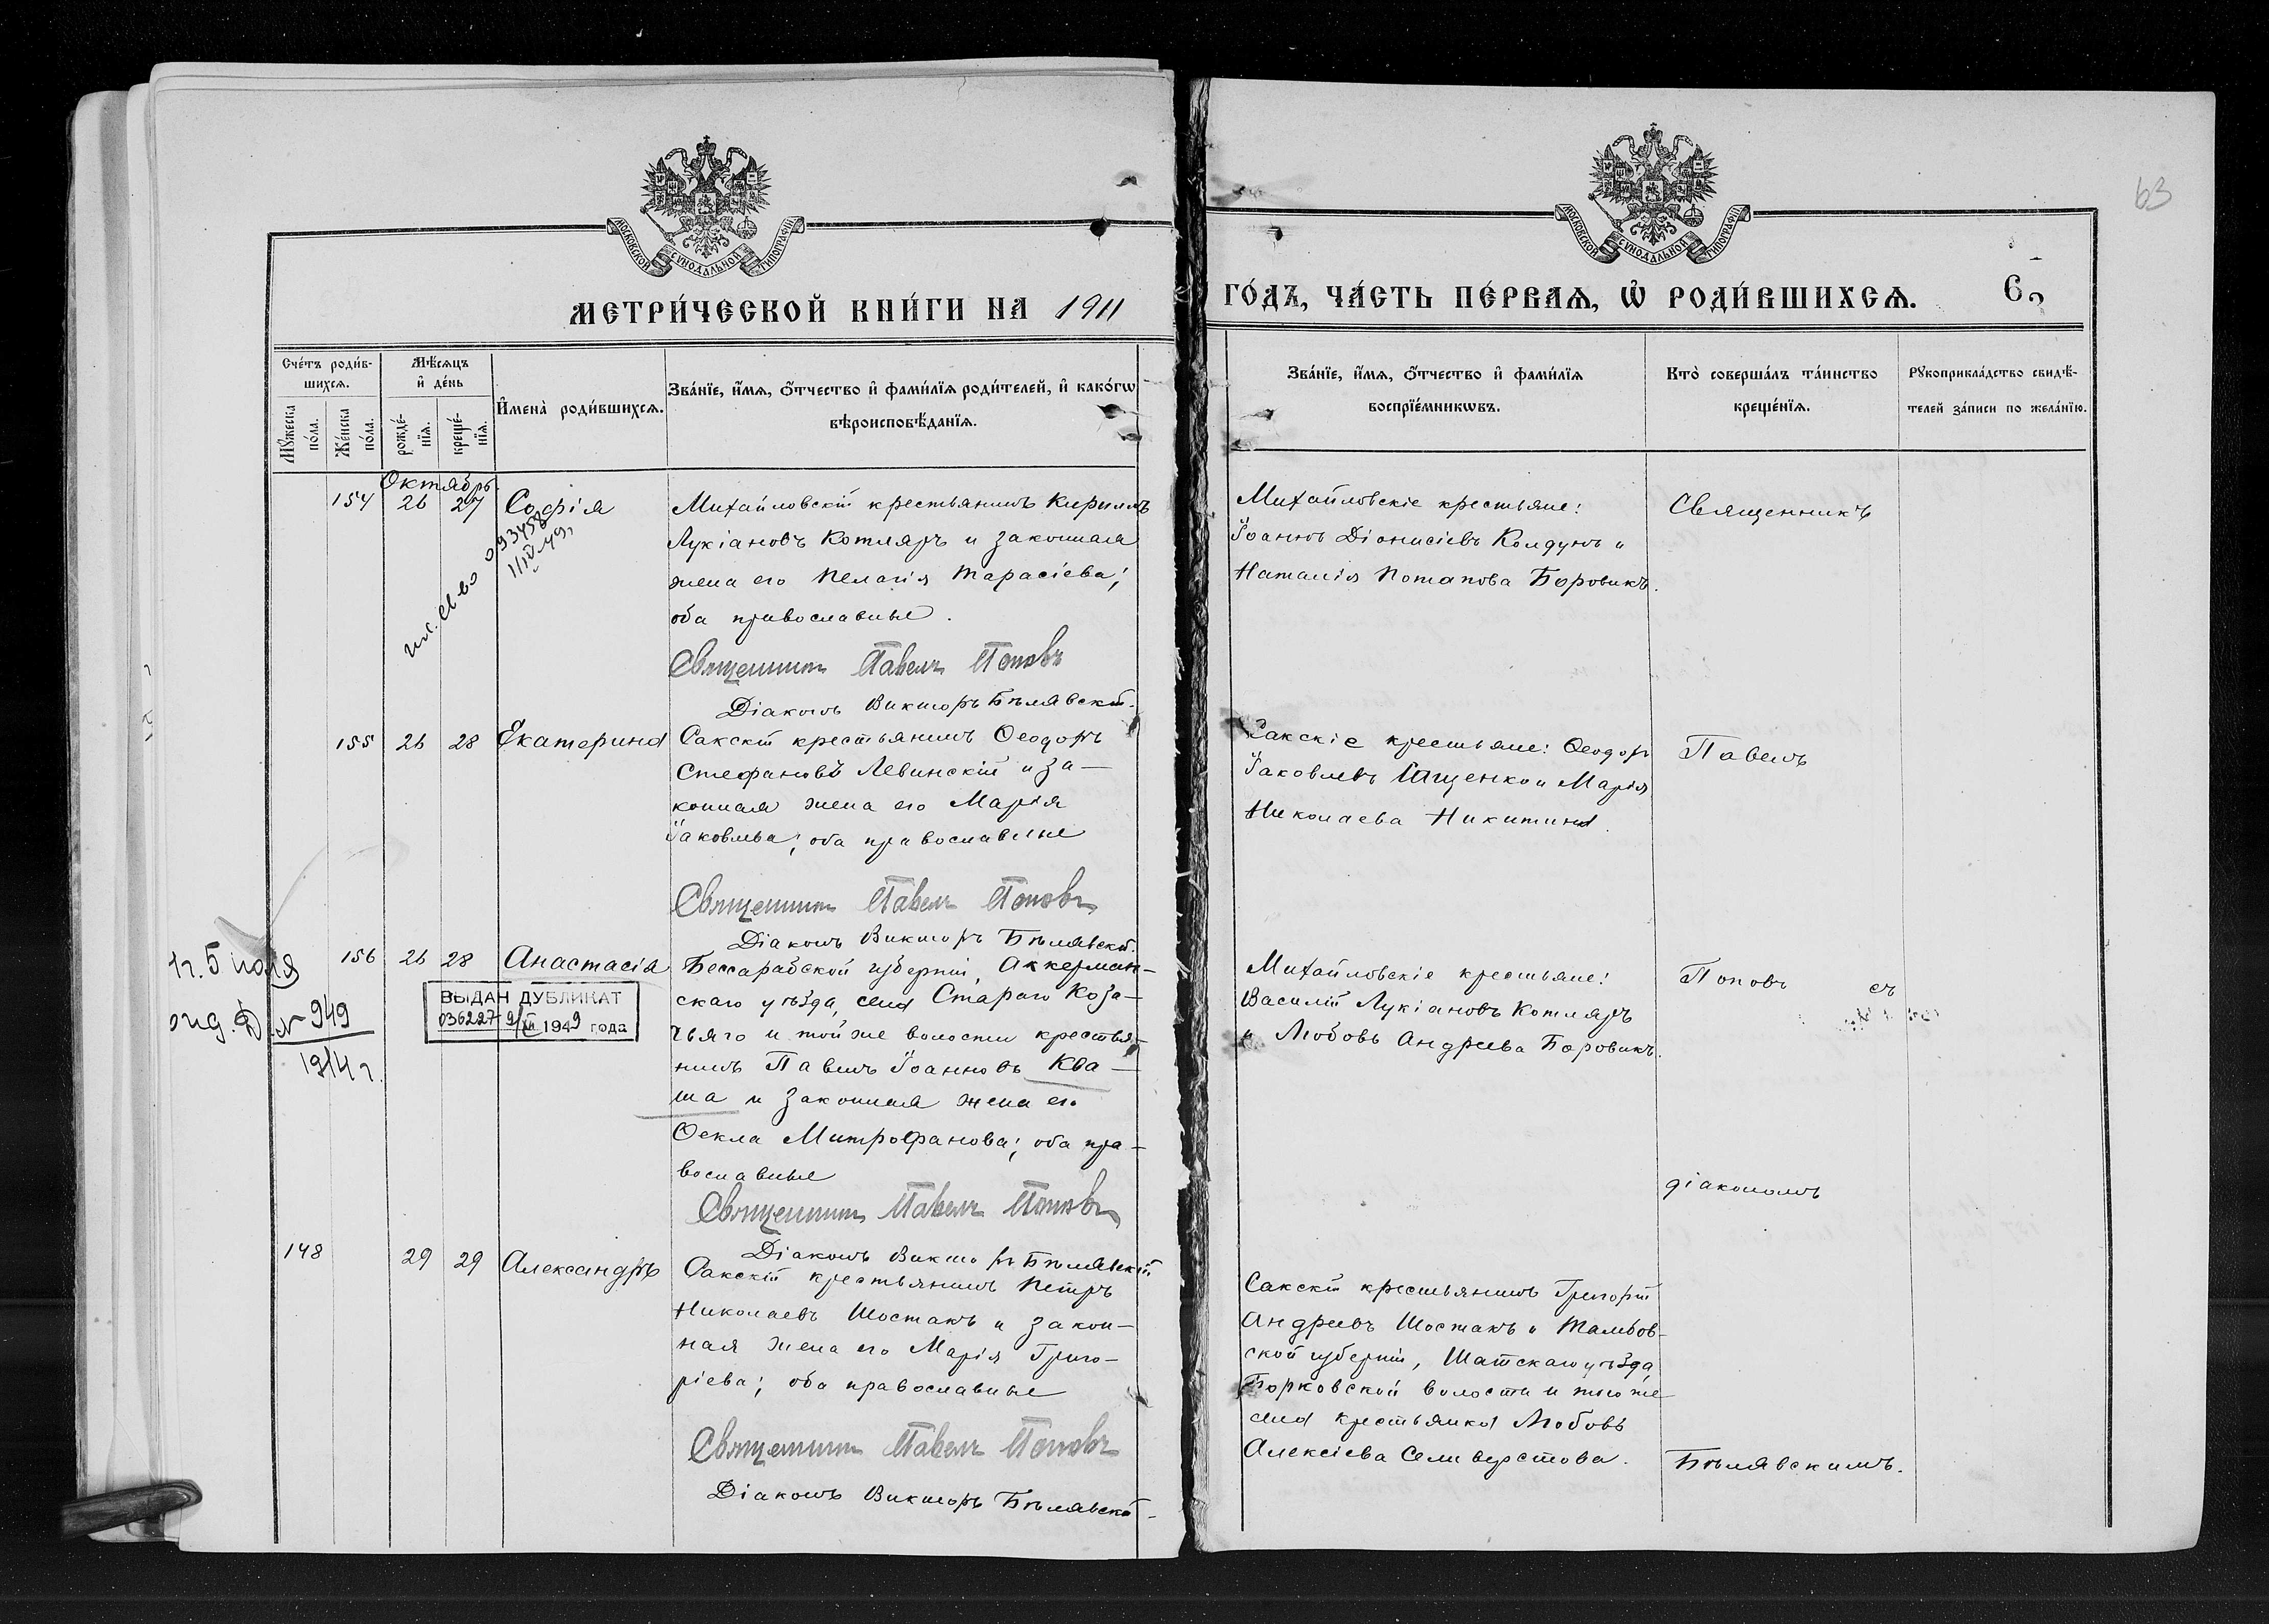 63
МОСКОВСКОЙ СУНОДАЛЬНОЙ ТИПОГРАФІИ
МОСКОВСКОЙ СУНОДАЛЬНОЙ ТИПОГРАФІИ
МЕТРИ́ЧЕСКОЙ КНИ́ГИ НА 1911
ГО́ДЪ, ЧА́СТЬ ПЕ́РВАѦ, Ѽ РОДИ́ВШИХСѦ.
Сче́тъ роди́в-
шихсѧ.
Мꙋ́жеска
по́ла.
Же́нска
по́ла.
Мѣ́сѧцъ
и҆ де́нь
рожде́-
нїѧ.
креще́-
нїѧ.
И҆мена̀ роди́вшихсѧ.
Зва́нїе, и҆́мѧ, ѻ҆́тчество и҆ фами́лїѧ роди́телей, и҆ како́гѡ
вѣроисповѣ́данїѧ.
Зва́нїе, и҆́мѧ, ѻ҆́тчество и҆ фами́лїѧ
воспрїе́мникѡвъ.
Кто̀ соверша́лъ та́инство
креще́нїѧ.
Рꙋкоприкла́дство свидѣ́-
телей за́писи по жела́нїю.
Октябрь.
154 26 27 Софія
093458
11 IV 49
Михайловскій крестьянинъ Кириллъ
Лукіановъ Котляръ и законная
жена его Пелагія Тарасіева;
оба православные.
Священникъ Павелъ Поповъ
Діаконъ Викторъ Бѣлявскій.
Михайловскіе крестьяне:
Іоаннъ Діонисіевъ Колдунъ и
Наталія Потапова Боровикъ.
Священникъ
155 26 28 Екатерина
Сакскій крестьянинъ Ѳеодоръ
Стефановъ Левинскій и за-
конная жена его Марія
Іаковлева; оба православные
Священникъ Павелъ Поповъ
Діаконъ Викторъ Бѣлявскій.
Сакскіе крестьяне: Ѳеодоръ
Іаковлевъ Ищенко и Марія
Николаева Никитина.
Павелъ
1г. 5 іюля
№ 949
1914 г.
156 26 28 Анастасія
ВЫДАН ДУБЛИКАТ
036227 9/XII 1949 года
Бессарабской губерніи, Аккерман-
скаго уѣзда, села Стараго Коза-
чьяго и той же волости крестья-
нинъ Павелъ Іоанновъ Ква-
ша и законная жена его
Ѳекла Митрофанова; оба пра-
вославные
Священникъ Павелъ Поповъ
Діаконъ Викторъ Бѣлявскій
Михайловскіе крестьяне:
Василій Лукіановъ Котляръ
и Любовь Андреева Боровикъ.
Поповъ съ
діакономъ
148 29 29 Александръ
Сакскій крестьянинъ Петръ
Николаевъ Шостакъ и закон-
ная жена его Марія Григо-
ріева; оба православные
Священникъ Павелъ Поповъ
Діаконъ Викторъ Бѣлявскій
Сакскій крестьянинъ Григорій
Андреевъ Шостакъ и Тамбов-
ской губерніи, Шатскаго уѣзда,
Борковской волости и того же
села крестьянка Любовь
Алексіева Селиверстова.
Бѣлявскимъ.